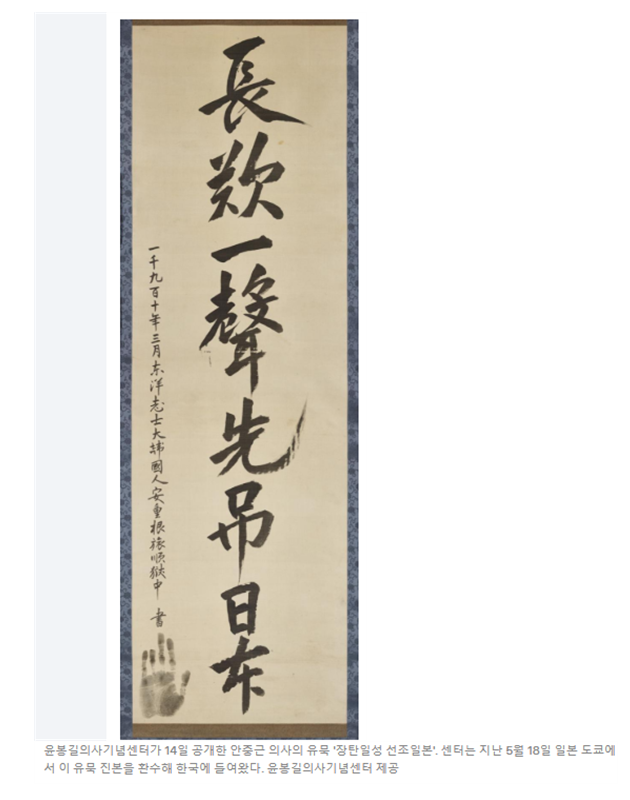 長歎一聲先吊日本
一千九百十年三月東洋志士大韓國人安重根旅順獄中 書
윤봉길의사기념센터가 14일 공개한 안중근 의사의 유묵 '장탄일성 선조일본'. 센터는 지난 5월 18일 일본 도쿄에
서 이 유묵 진본을 환수해 한국에 들여왔다. 윤봉길의사기념센터 제공